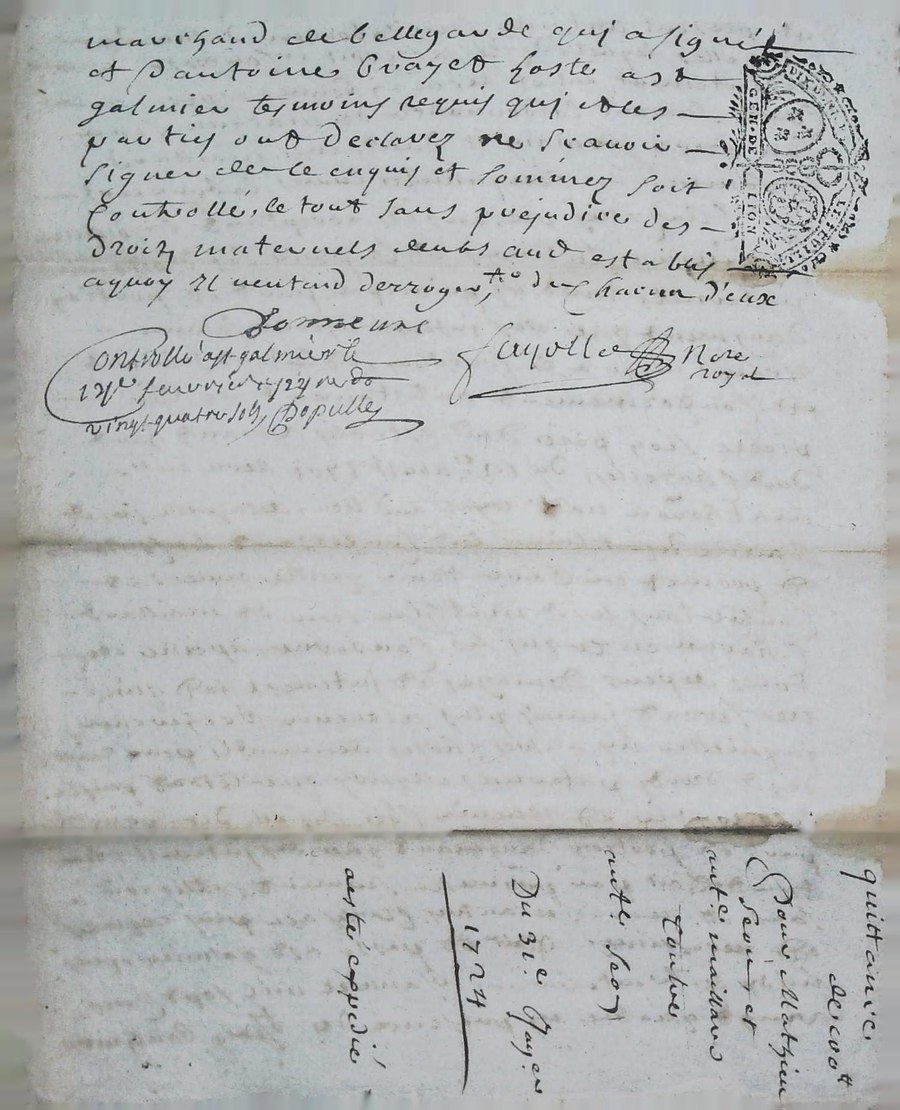 marchand de bellegarde qui a signé
et d'antoine Grayet hoste a st
galmier tesmoins requis qui et les
parties ont declarez ne scavoir
signer de ce enquis et sommez soit
Controllé, le tout sans prejudice des
droitz maternels deubs aud establis
aquoy Il nentand derroger, de Chacun d'eux
Donne une
Controllé a st galmier le
fevrier 1724
vingt quatre sols
Fayolle Nore
royal
GEN. DE LYON
quittance
de 100tt
Pour Mathieu
Seon et
ante maillard
Contre
ante Seon
Du 31e Janer
1724
a esté expedié